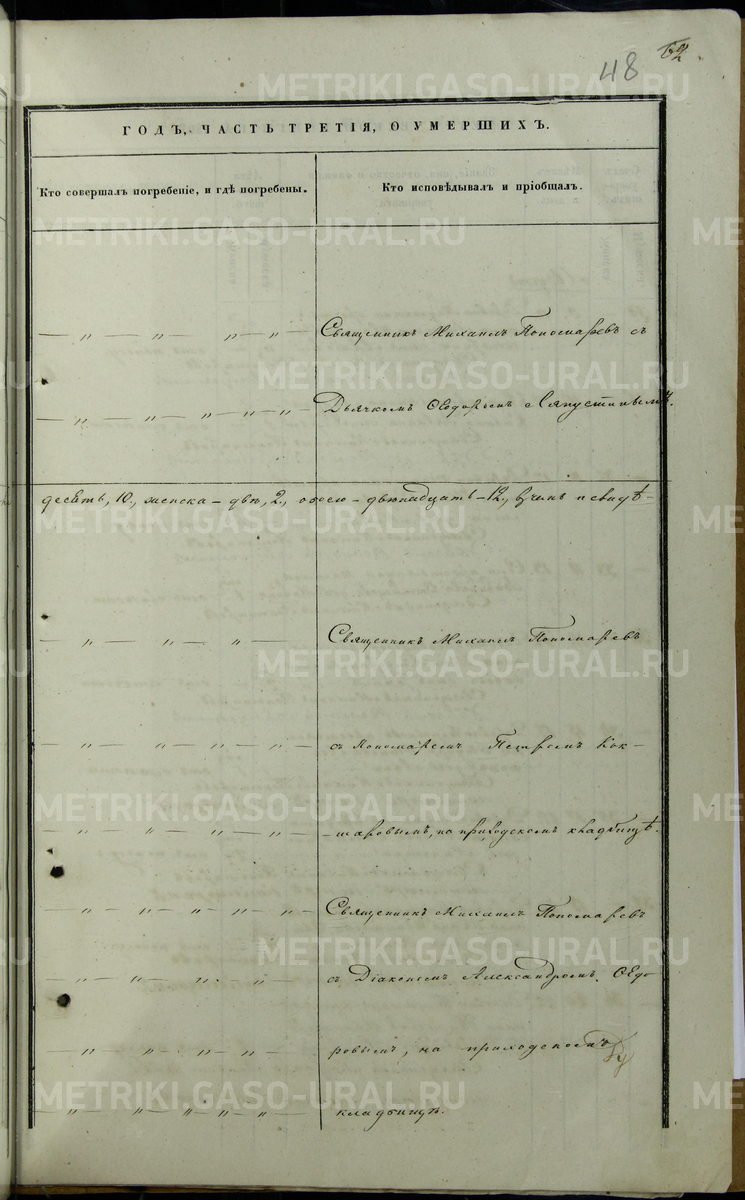 48 62.
ГОДЪ, ЧАСТЬ ТРЕТІЯ, О УМЕРШИХЪ.
Кто совершалъ погребеніе, и гдѣ погребены.
Кто исповѣдывалъ и пріобщалъ.
— „ — „ — „ — „ — Священникъ Михаилъ Пономаревъ съ
— „ — „ — „ — „ — Дьячкомъ Ѳеодоромъ
десять, 10., женска – двѣ, 2., обоего – двѣнадцать – 12., чинъ и свидѣ-
— „ — „ — „ — Священникъ Михаилъ Пономаревъ
— „ — „ — „ — „ — съ Пономаремъ Петромъ Кок-
— „ — „ — „ — „ — -шаровымъ, на приходскомъ кладбищѣ.
— „ — „ — „ — „ — „ — Священникъ Михаилъ Пономаревъ
— „ — „ — „ — „ — съ Діакономъ Александромъ Ѳедо-
— „ — „ — „ — „ — ровымъ, на приходскомъ
— „ — „ — „ — „ — „ — кладбищѣ.
METRIKI.GASO-URAL.RU